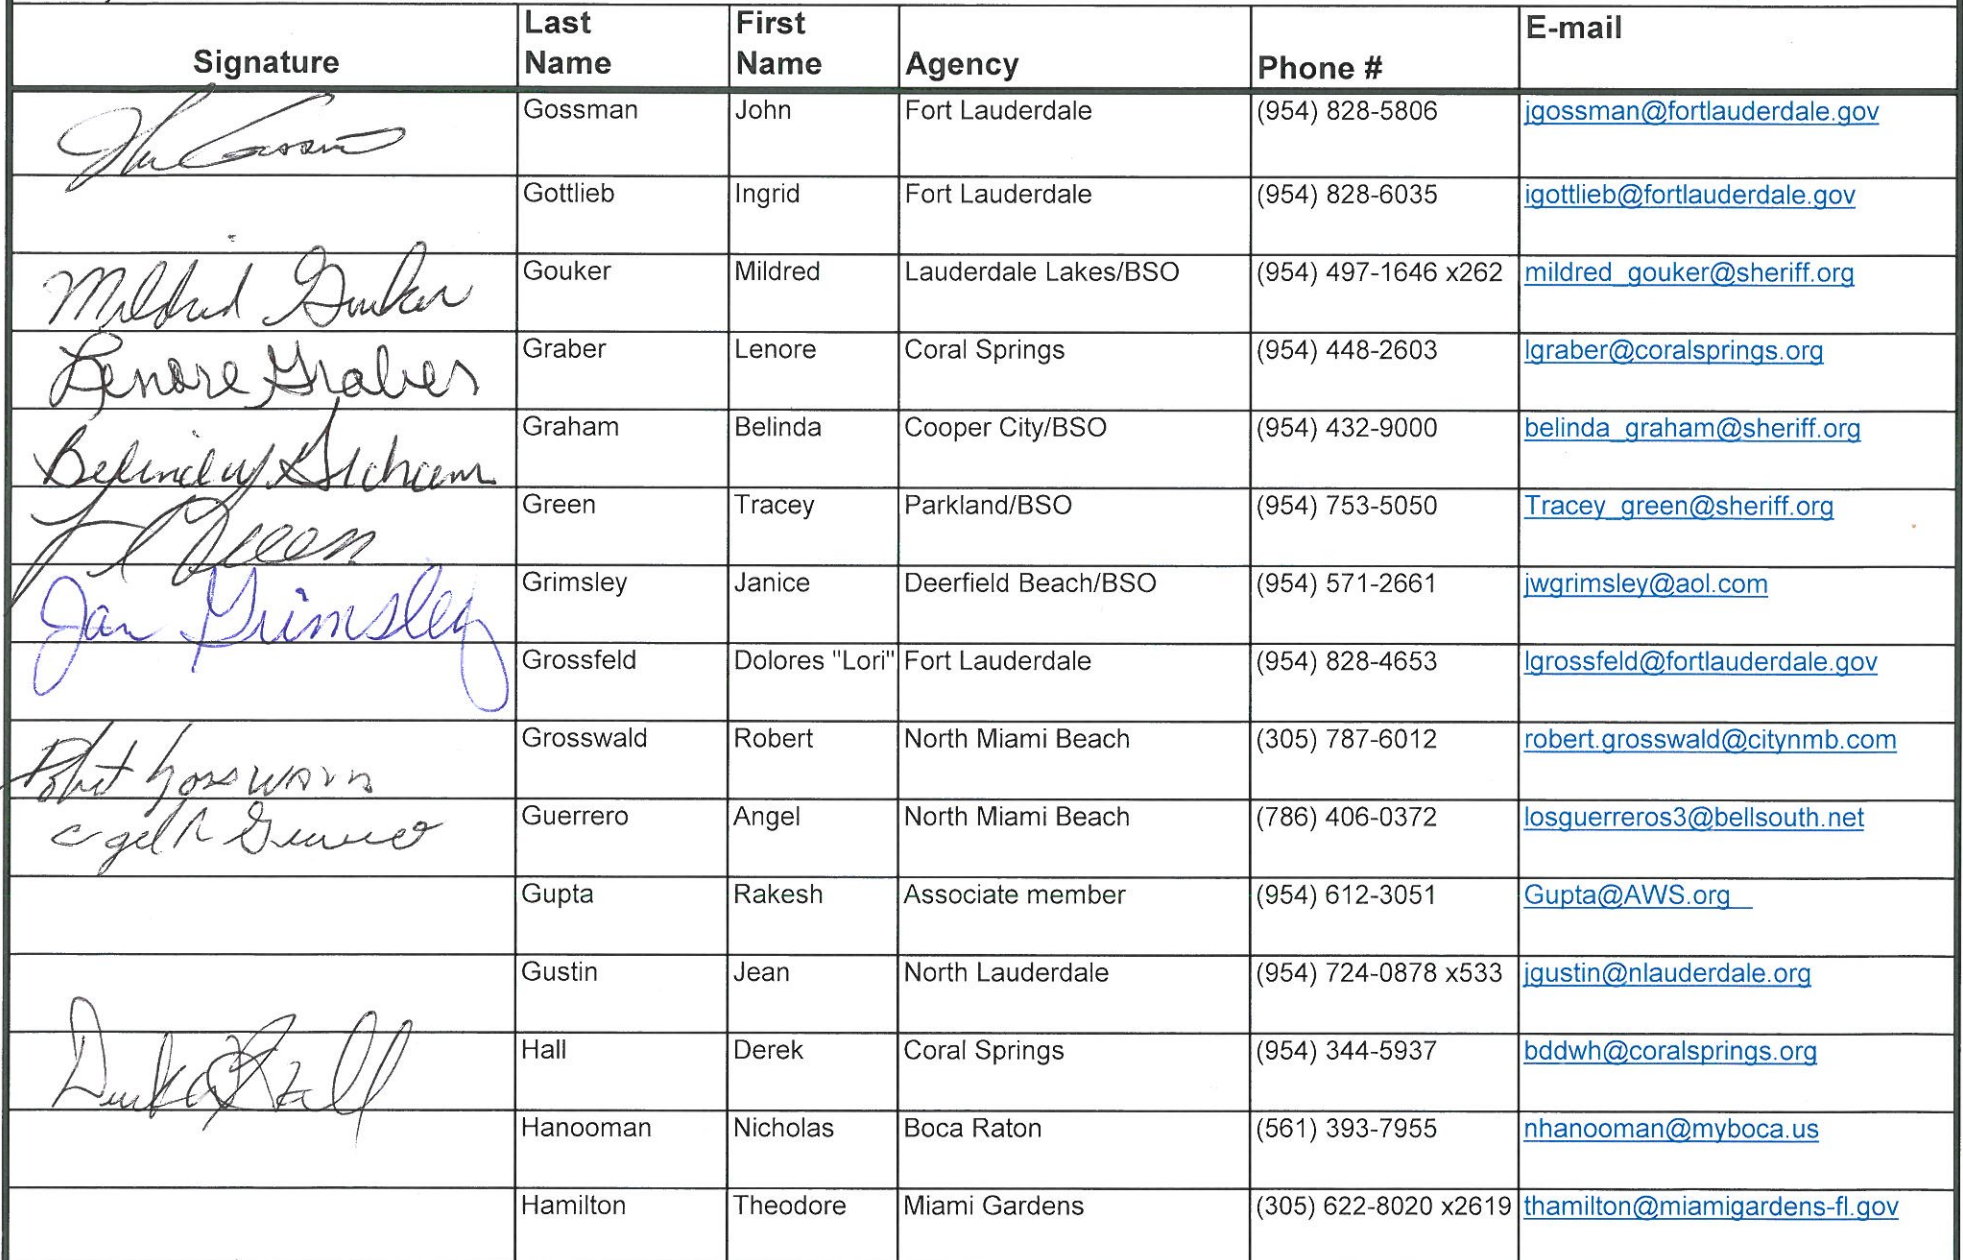 Signature Last Name First Name Agency Phone # E-mail
John Gossman Gossman John Fort Lauderdale (954) 828-5806 jgossman@fortlauderdale.gov
Gottlieb Ingrid Fort Lauderdale (954) 828-6035 igottlieb@fortlauderdale.gov
Mildred Gouker Gouker Mildred Lauderdale Lakes/BSO (954) 497-1646 x262 mildred_gouker@sheriff.org
Lenore Graber Graber Lenore Coral Springs (954) 448-2603 lgraber@coralsprings.org
Belinda Graham Graham Belinda Cooper City/BSO (954) 432-9000 belinda_graham@sheriff.org
T Green Green Tracey Parkland/BSO (954) 753-5050 Tracey_green@sheriff.org
Jan Grimsley Grimsley Janice Deerfield Beach/BSO (954) 571-2661 jwgrimsley@aol.com
Grossfeld Dolores "Lori" Fort Lauderdale (954) 828-4653 lgrossfeld@fortlauderdale.gov
Robert Grosswald Grosswald Robert North Miami Beach (305) 787-6012 robert.grosswald@citynmb.com
Angel Guerrero Guerrero Angel North Miami Beach (786) 406-0372 losguerreros3@bellsouth.net
Gupta Rakesh Associate member (954) 612-3051 Gupta@AWS.org
Gustin Jean North Lauderdale (954) 724-0878 x533 jgustin@nlauderdale.org
Derek Hall Hall Derek Coral Springs (954) 344-5937 bddwh@coralsprings.org
Hanooman Nicholas Boca Raton (561) 393-7955 nhanooman@myboca.us
Hamilton Theodore Miami Gardens (305) 622-8020 x2619 thamilton@miamigardens-fl.gov